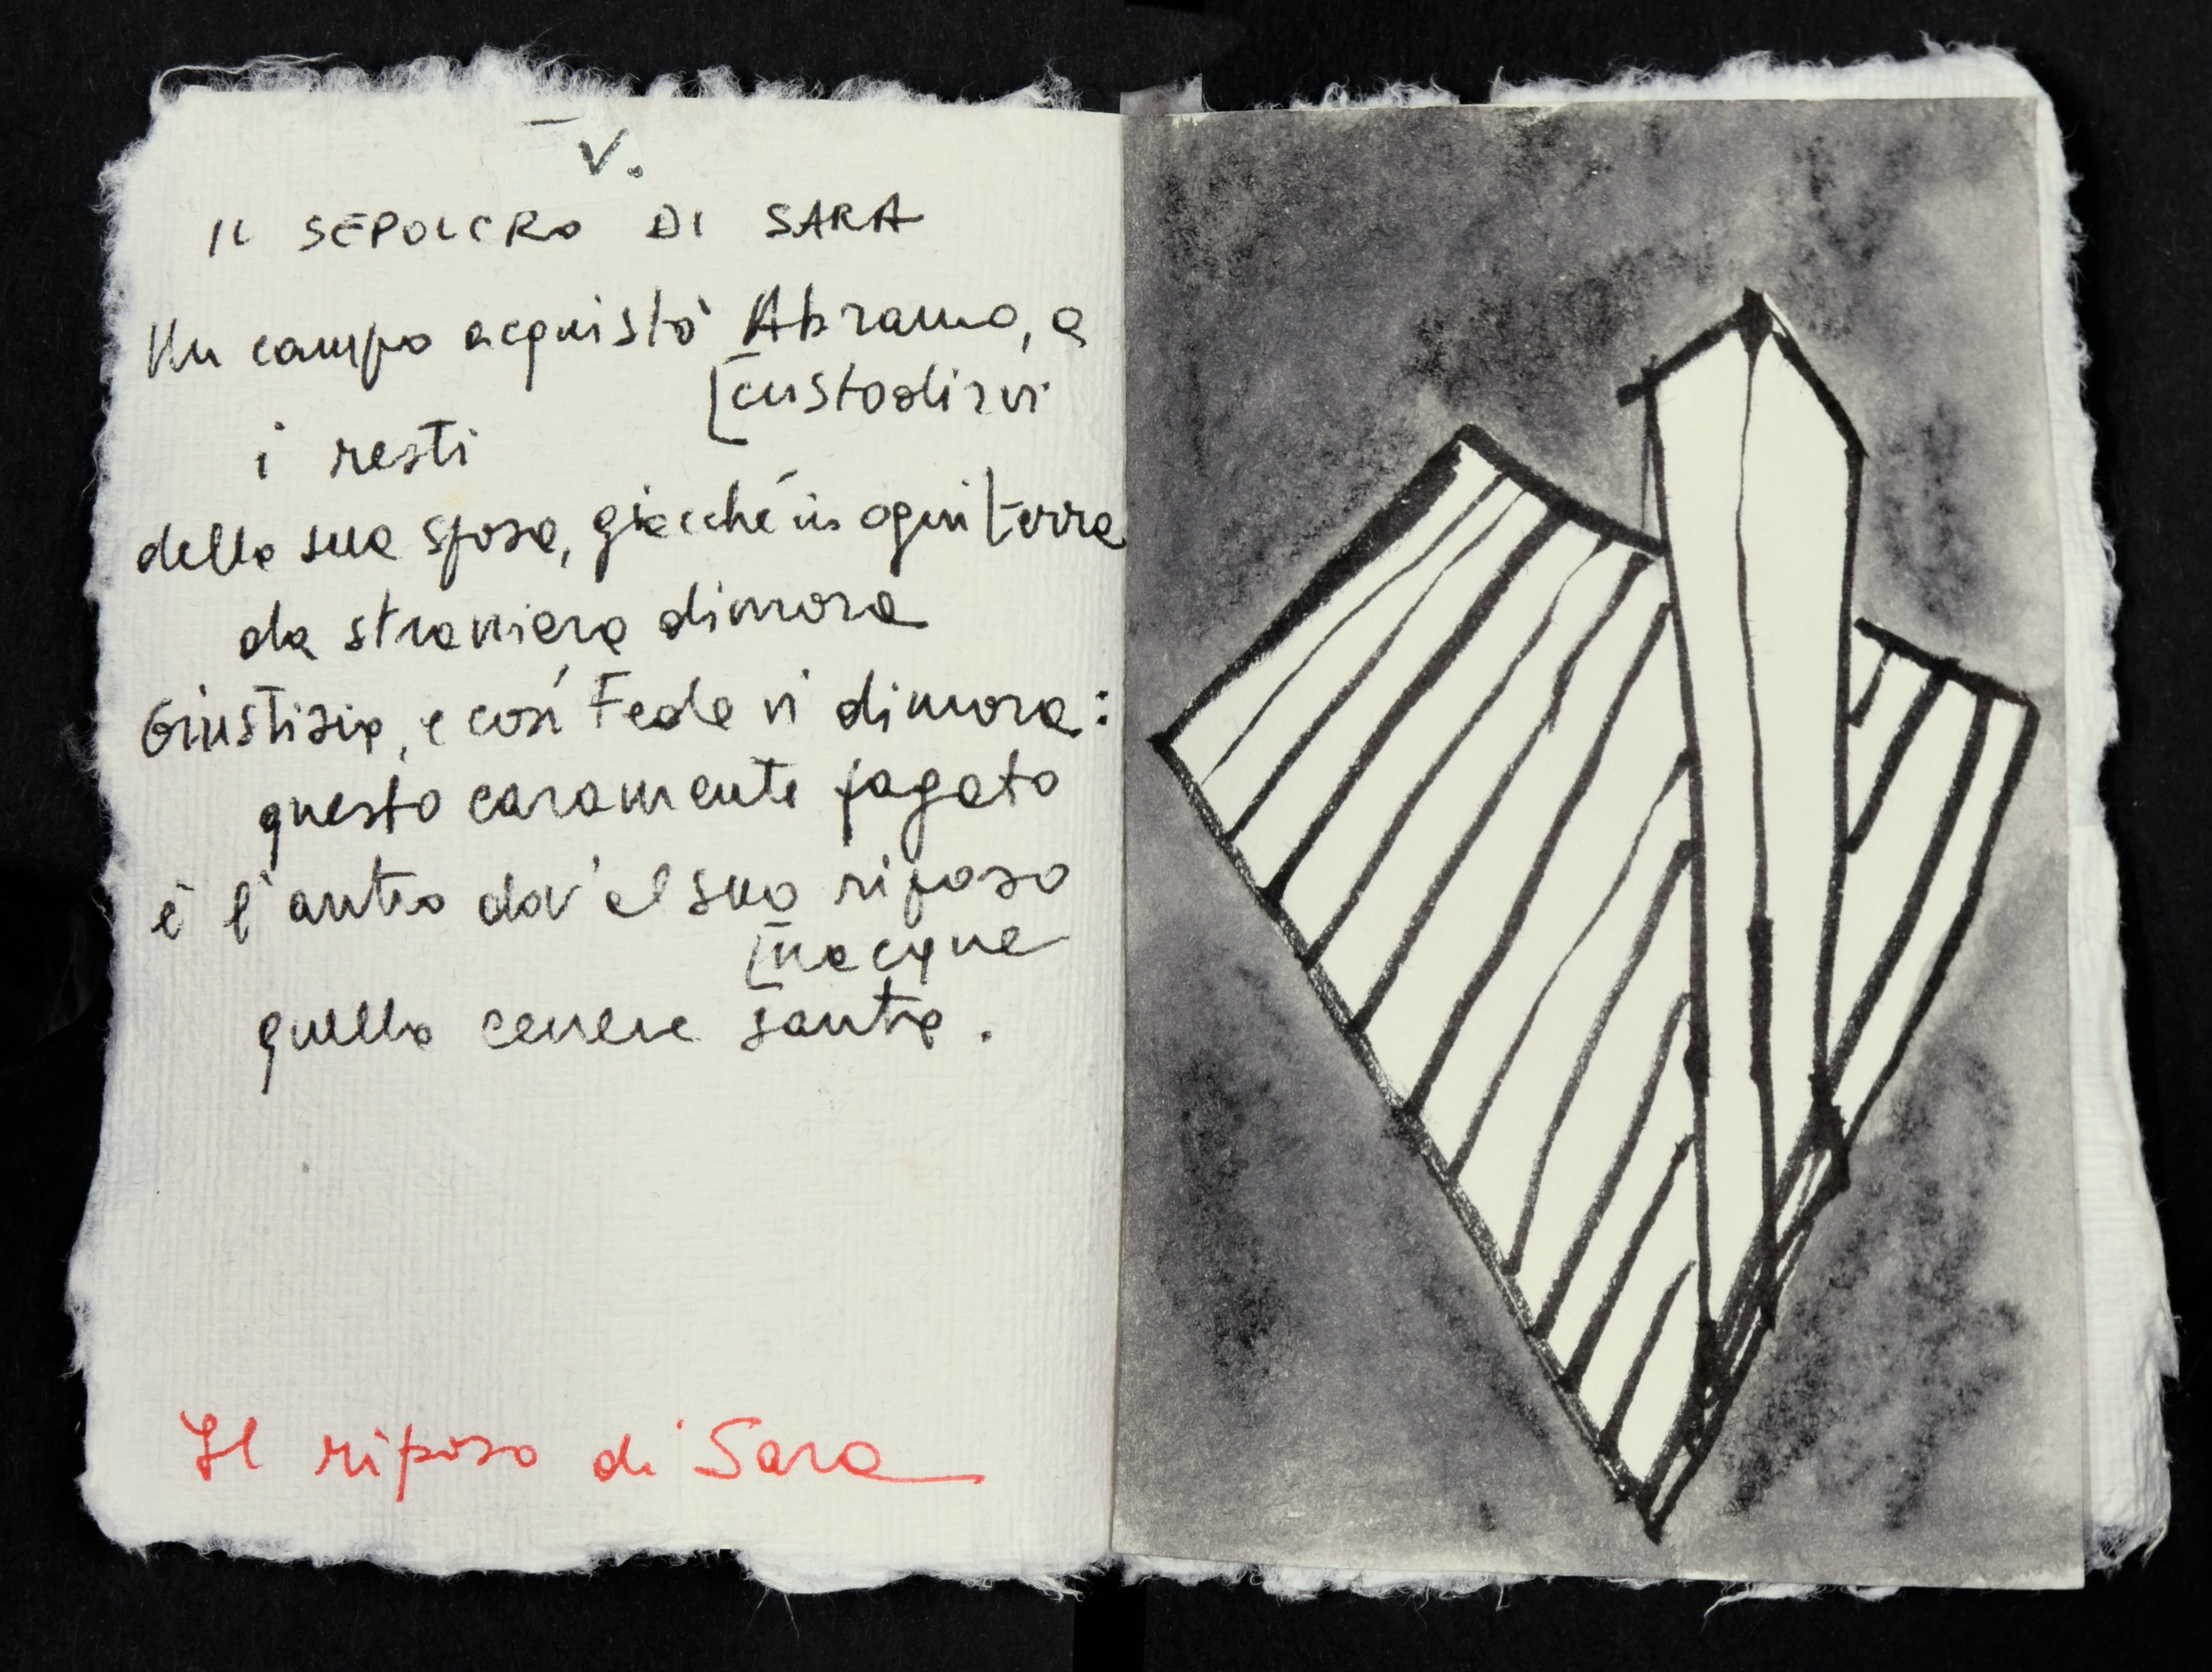 V.
IL SEPOLCRO DI SARA
Un campo acquistò Abramo, a
[custodirvi
i resti
della sua sposa, giacché in ogni terra
da straniera dimora
Giustizia, e così Fede vi dimora:
questo caramente pagato
è l'antro dov'el suo riposo
[nacque
quella cenere santa.
Il riposo di Sara